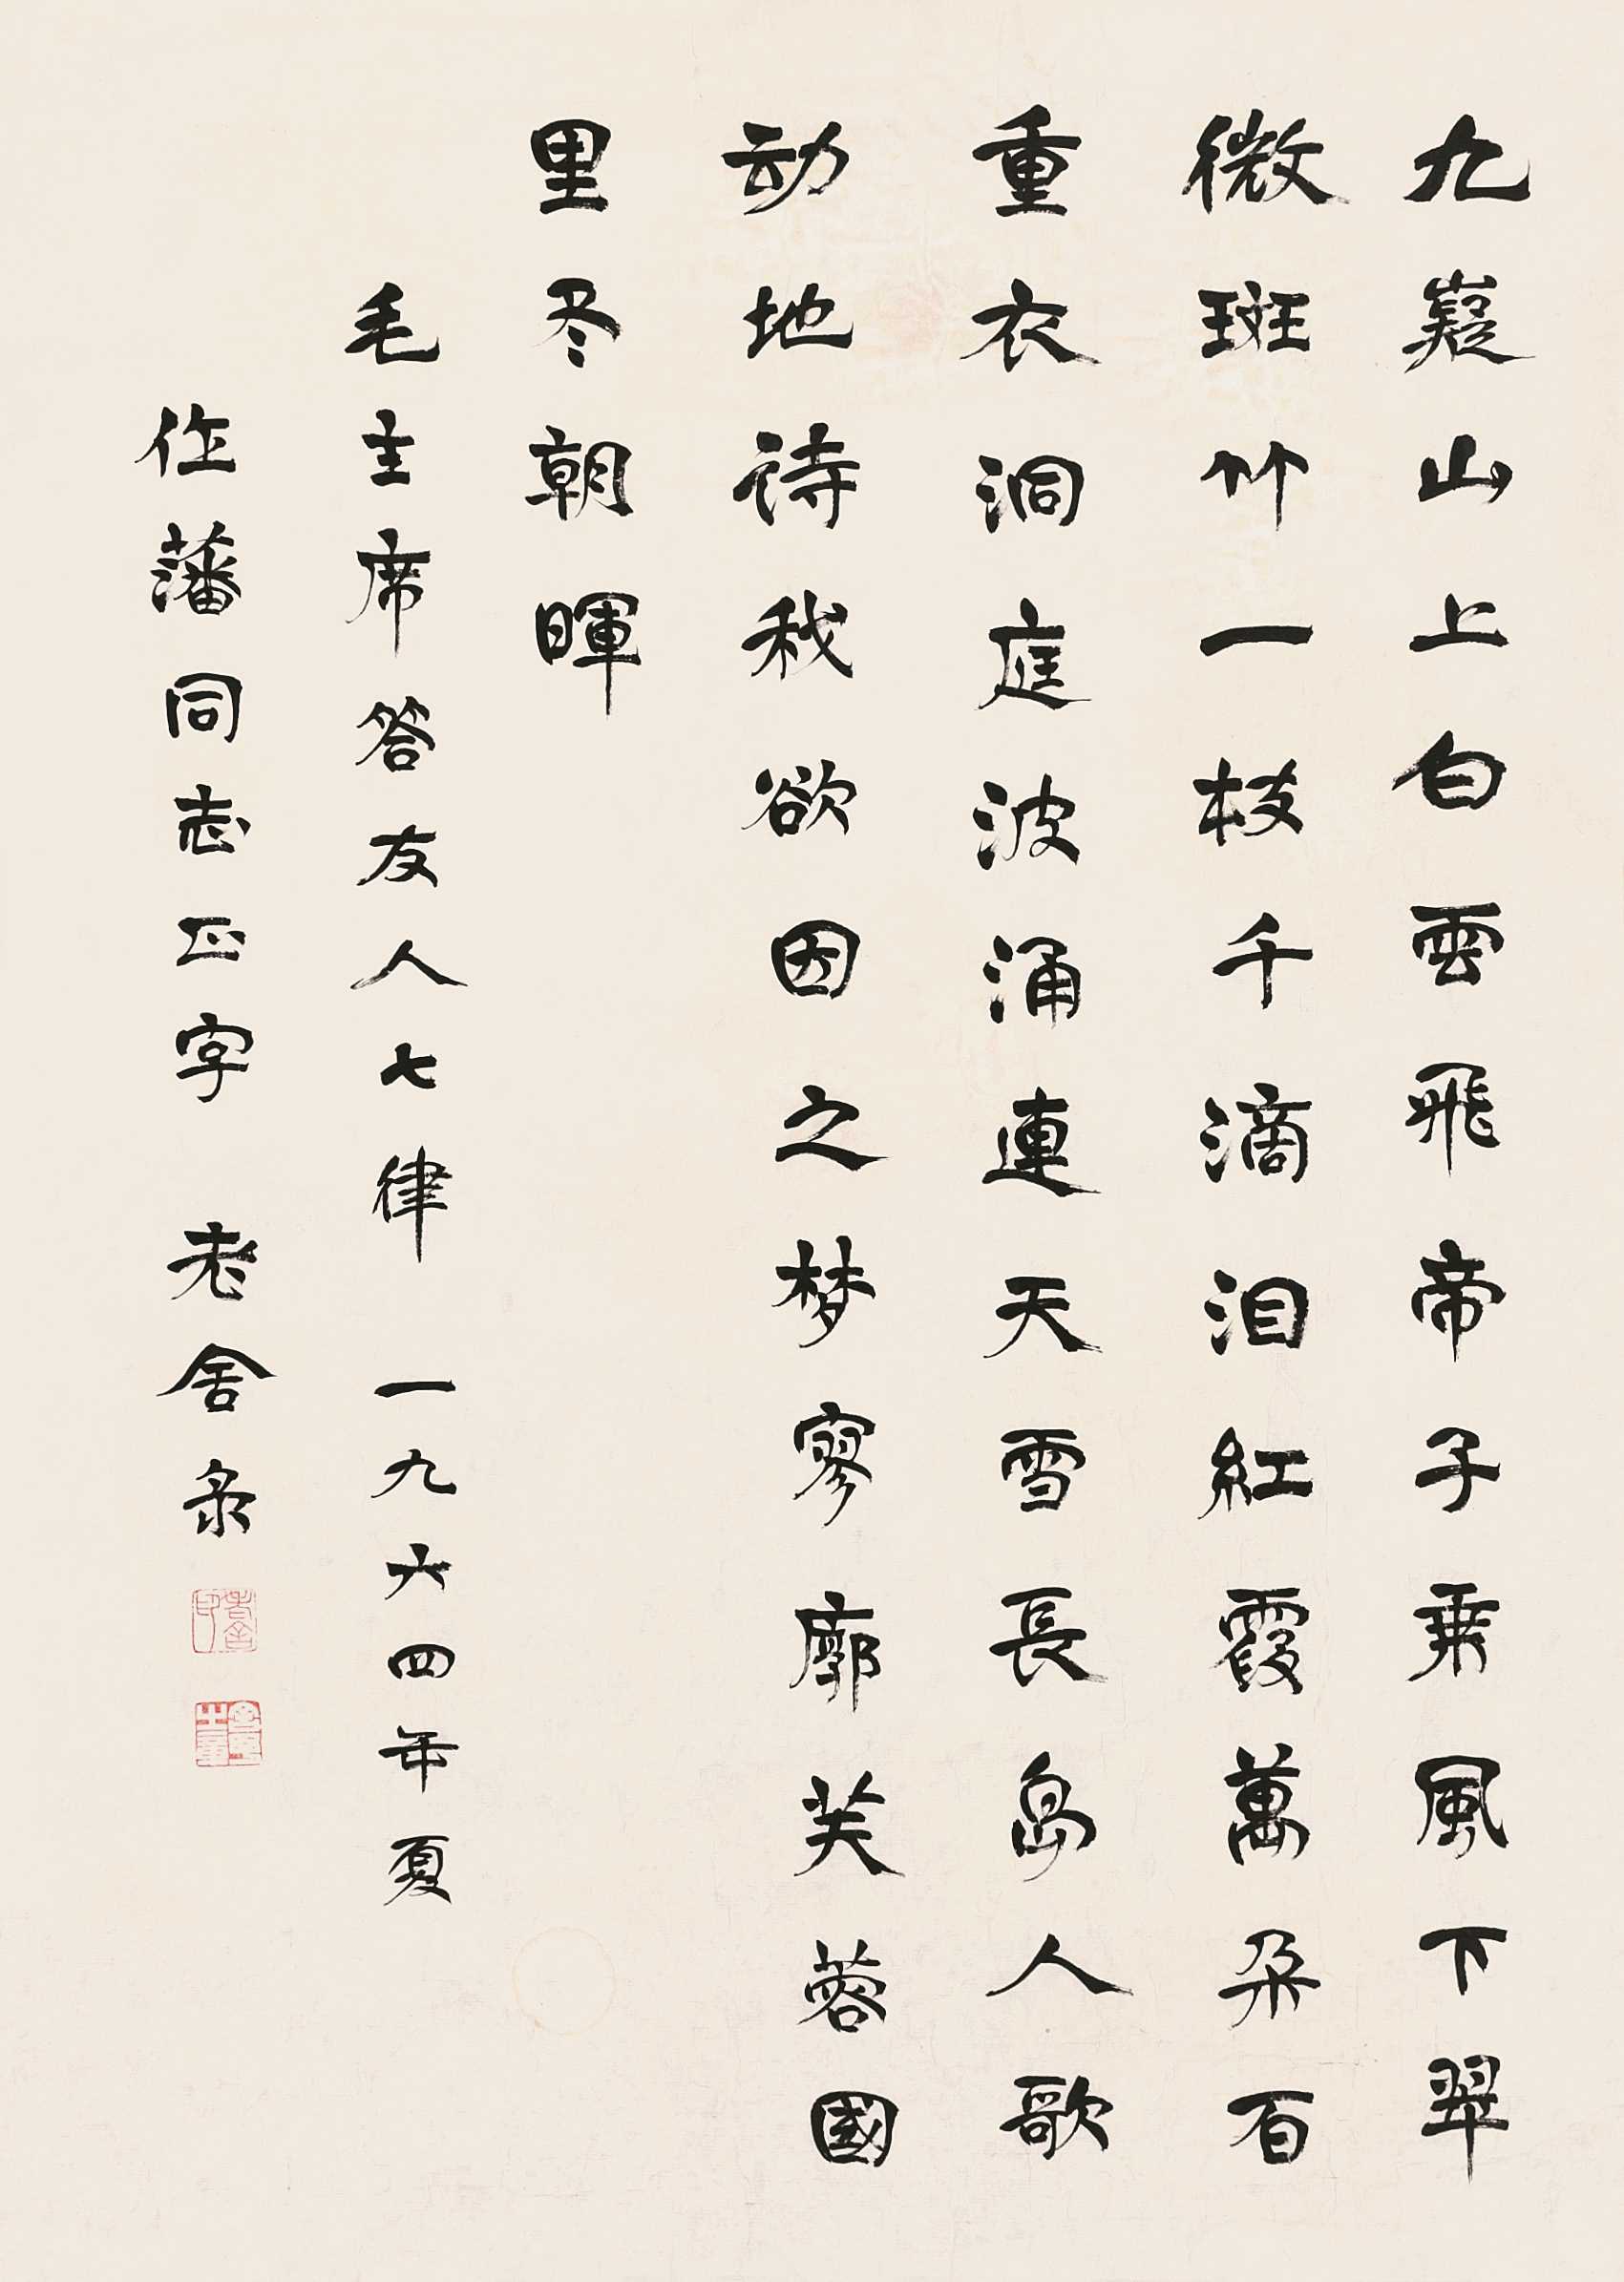 九嶷山上白雲飛帝子乘風下翠
微斑竹一枝千滴泪紅霞萬朵百
重衣洞庭波涌連天雪長岛人歌
动地诗我欲因之梦寥廓芙蓉國
里尽朝暉
毛主席答友人七律 一九六四年夏
作藩同志正字 老舍录
老舍印